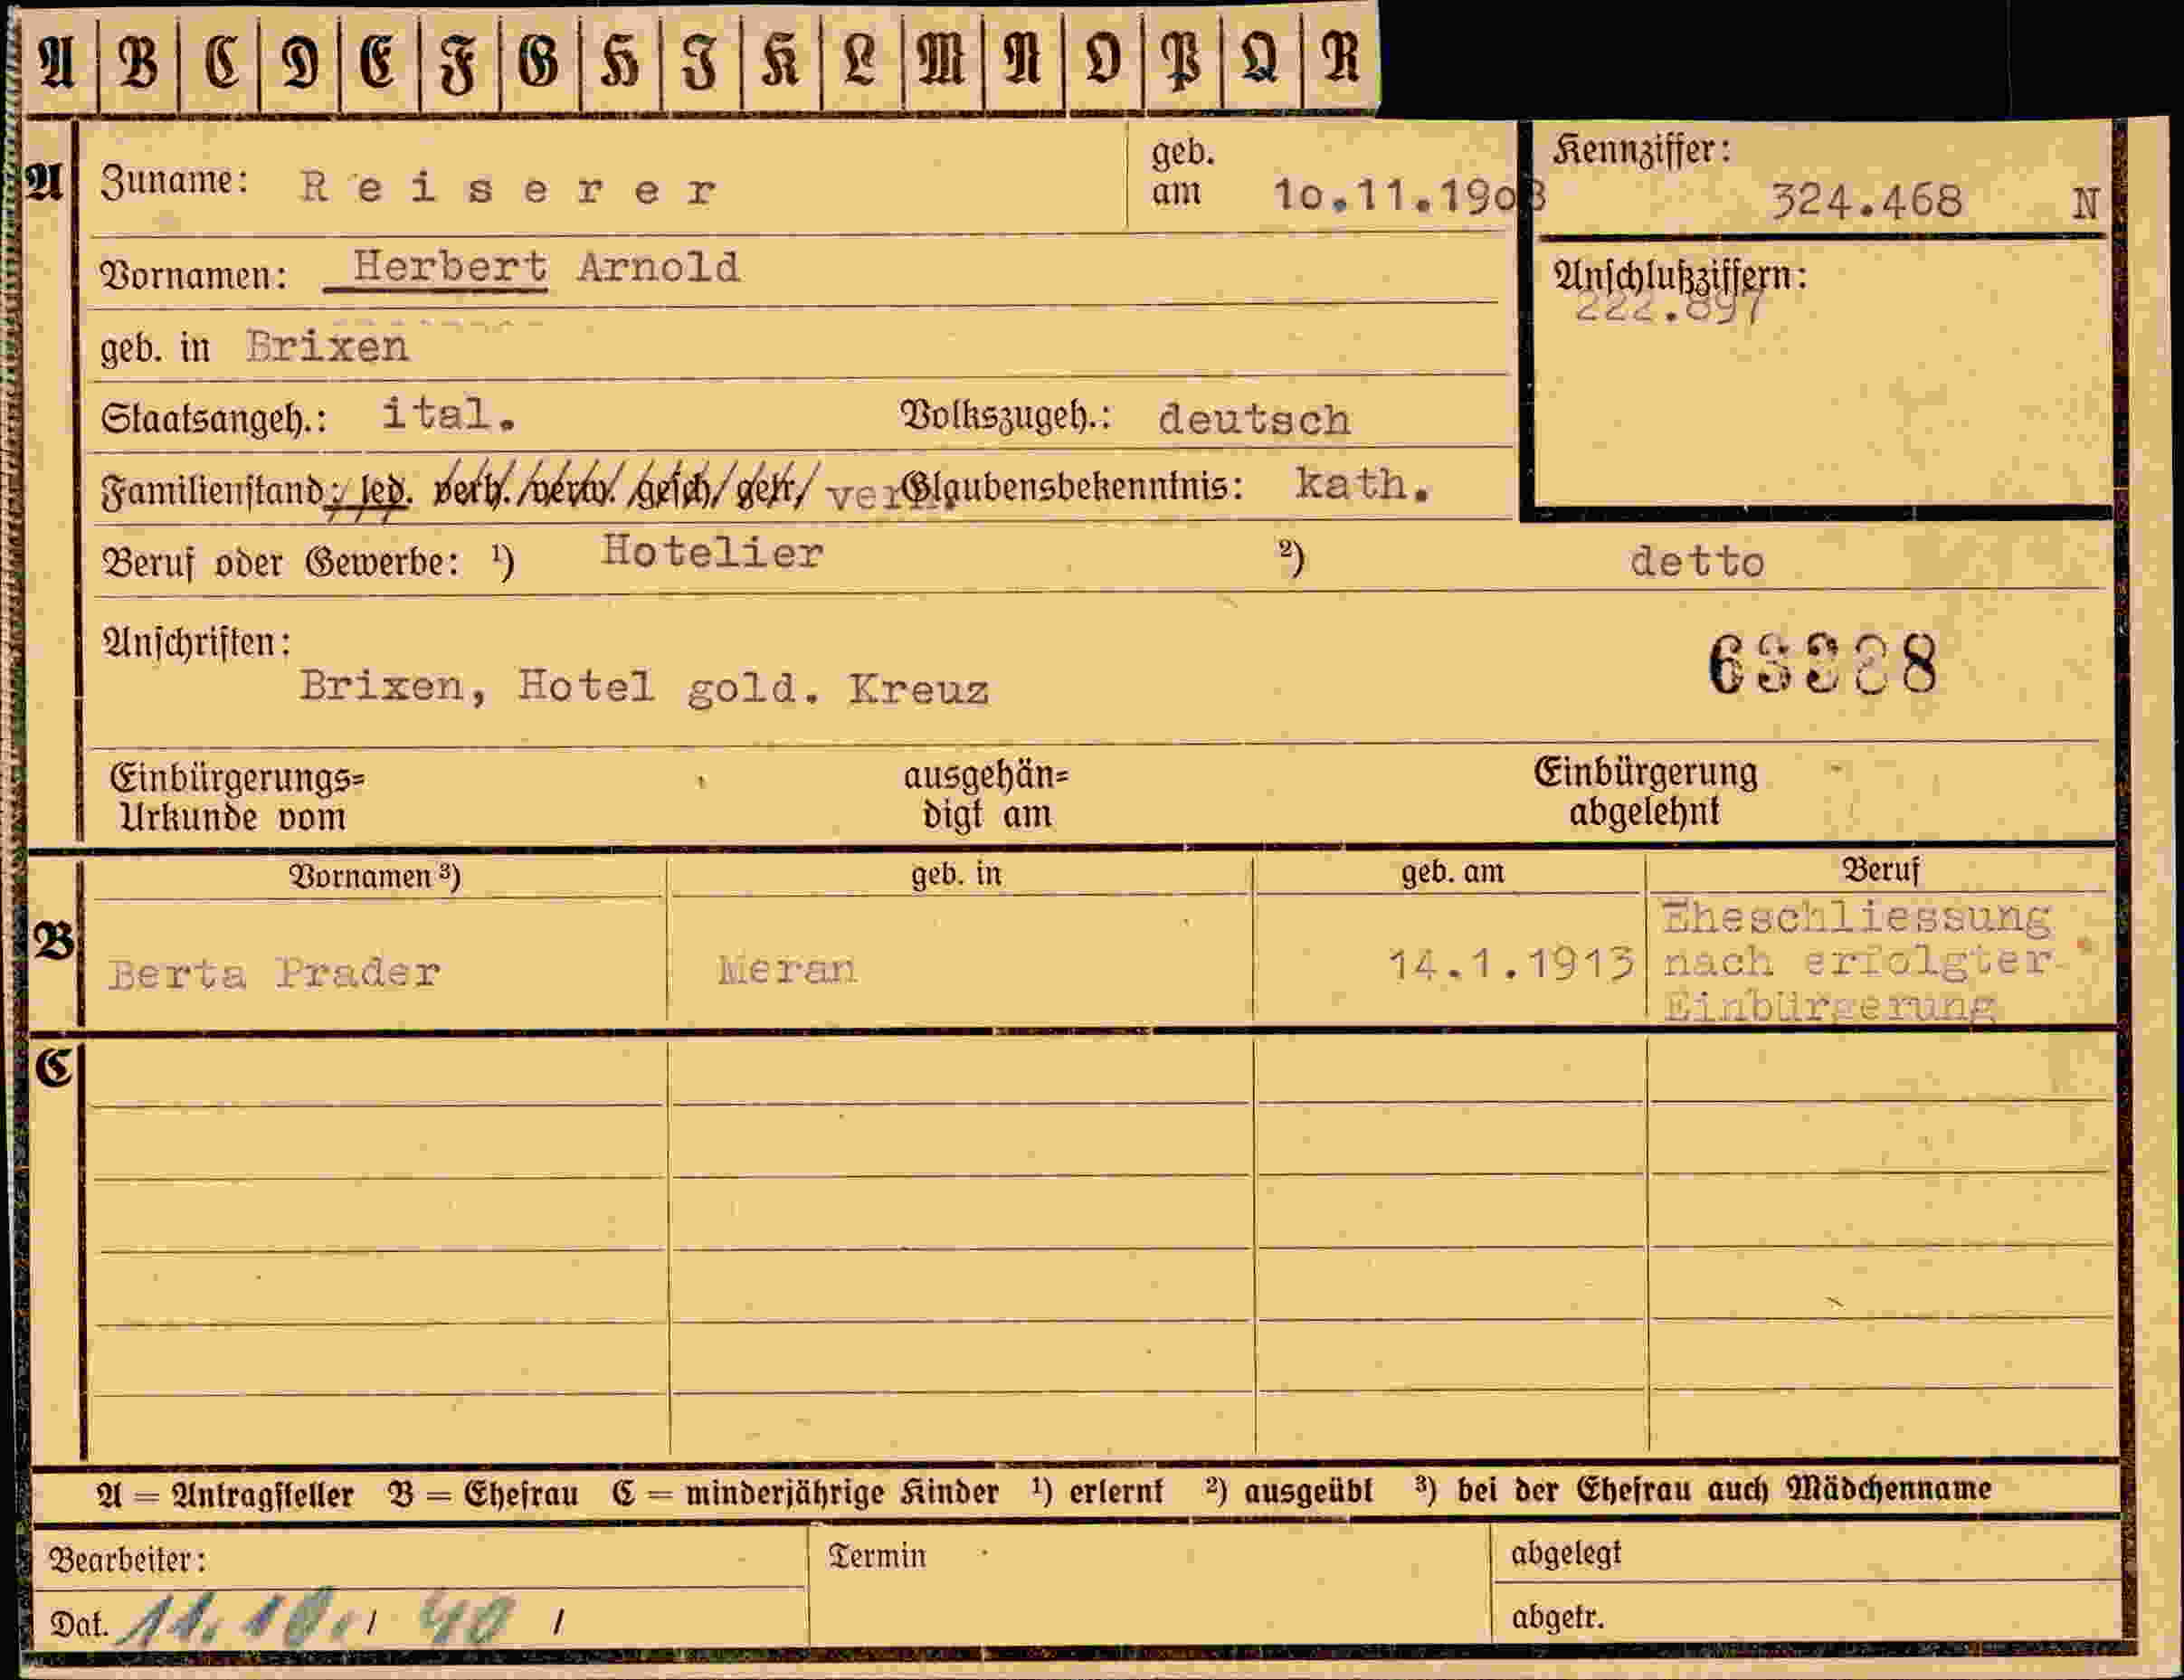 A B C D E F G H I K L M N O P Q R
A
Zuname: Reiserer
geb. am 10.11.1908
Kennziffer: 324.468 N
Vornamen: Herbert Arnold
Anschlußziffern: 222.897
geb. in Brixen
Staatsangeh.: ital. Volkszugeh.: deutsch
Familienstand: led. verh. verw. gesch. getr. Glaubensbekenntnis: kath.
Beruf oder Gewerbe: 1) Hotelier 2) detto
Anschriften:
Brixen, Hotel gold. Kreuz
Einbürgerungs=
Urkunde vom
ausgehän=
digt am
Einbürgerung
abgelehnt
B
Vornamen 3) geb. in geb. am Beruf
Berta Prader Meran 14.1.1913
Eheschliessung
nach erfolgter
Einbürgerung
C
A = Antragsteller B = Ehefrau C = minderjährige Kinder 1) erlernt 2) ausgeübt 3) bei der Ehefrau auch Mädchenname
Bearbeiter: Termin abgelegt
Dat. 11. 10. / 40 / abgetr.